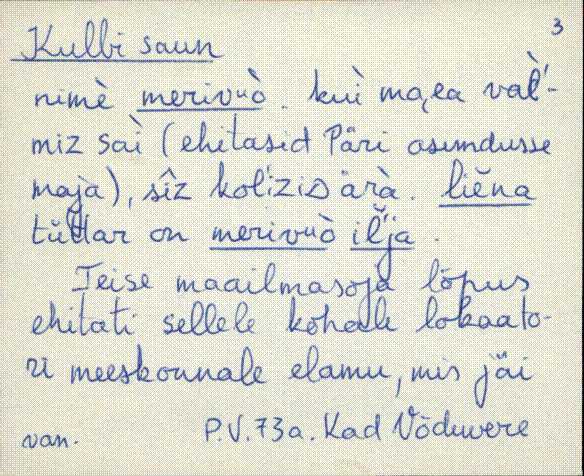 3
Kulbi saun
nimè merivuò. kuì ma͔ea val̀'-
miz saì (ehitasid Päri asundusse
maja), sîz kol'izID ärà. liĕna
tüt́tar on merivuò il'ja.
Teise maailmasoja lõpus
ehitati sellele kohale lokaato-
ri meeskonnale elamu, mis jäi
van. P.V. 73a. Kad Võduvere